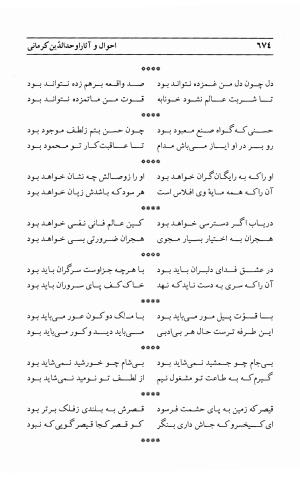 ٦٧٤ احوال و آثار اوحدالدّین کرمانی
****
دل چون دل من غمزده نتواند بود صد واقعه برهم زده نتواند بود
تا شربت عالم نشود خونابه قوت من ماتمزده نتواند بود
****
حسنی که گواه صنع معبود بود چون حسن بتم زلطف موجود بود
رو بر در او ایاز می‌باش مدام تا عاقبت کار تو محمود بود
****
او را که به رایگان گران خواهد بود او را زوصالش چه نشان خواهد بود
آن را که همه مایهٔ وی افلاس است هر سود که باشدش زیان خواهد بود
****
دریاب اگر دسترسی خواهد بود کین عالم فانی نفسی خواهد بود
هجران به اختیار بسیار مجوی هجران ضرورتی بسی خواهد بود
****
در عشق فدای دلبران باید بود با هرچه جزاوست سرگران باید بود
آن را که سری به دست ناید که نهد خاک کف پای سروران باید بود
****
با قوّت پیل مور می‌باید بود با ملک دو کون عور می‌باید بود
این طرفه ترست حال هر بی‌ادبی می‌باید دید و کور می‌باید بود
****
بی‌جام چو جمشید نمی‌شاید بود بی‌شام چو خورشید نمی‌شاید بود
گیرم که به طاعت تو مشغول نیم از لطف تو نومید نمی‌شاید بود
****
قیصر که زمین به پای حشمت فرسود قصرش به بلندی زفلک برتر بود
ای کیخسرو که جاش داری بنگر کو قصر کجا قیصر گویی که نبود
****